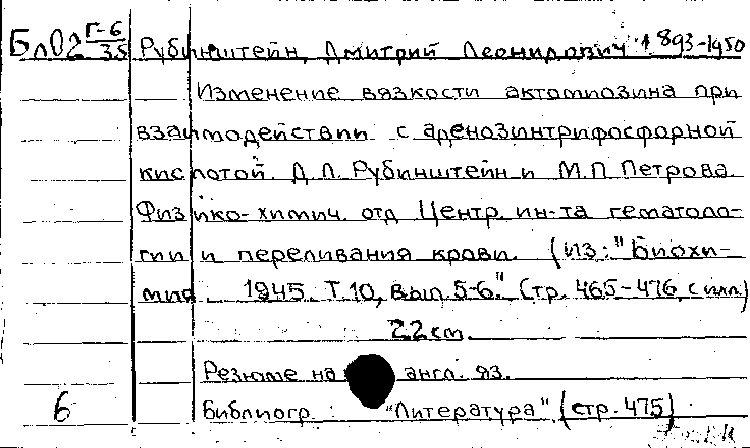 Бл02 Г-6/35 Рубинштейн, Дмитрий Леонидович 1893-1950
Изменение вязкости актомиозина при
взаимодействии с аденозинтрифосфорной
кислотой. Д.Л. Рубинштейн и М.П. Петрова.
Физико-химич. отд Центр. ин-та гематоло-
гии и переливания крови. (Из: "Биохи-
мия. 1945. Т.10, вып. 5-6." Стр. 465-476, с илл.)
22 cm.
Резюме на англ. яз.
6 Библиогр.: "Литература" (стр. 475)